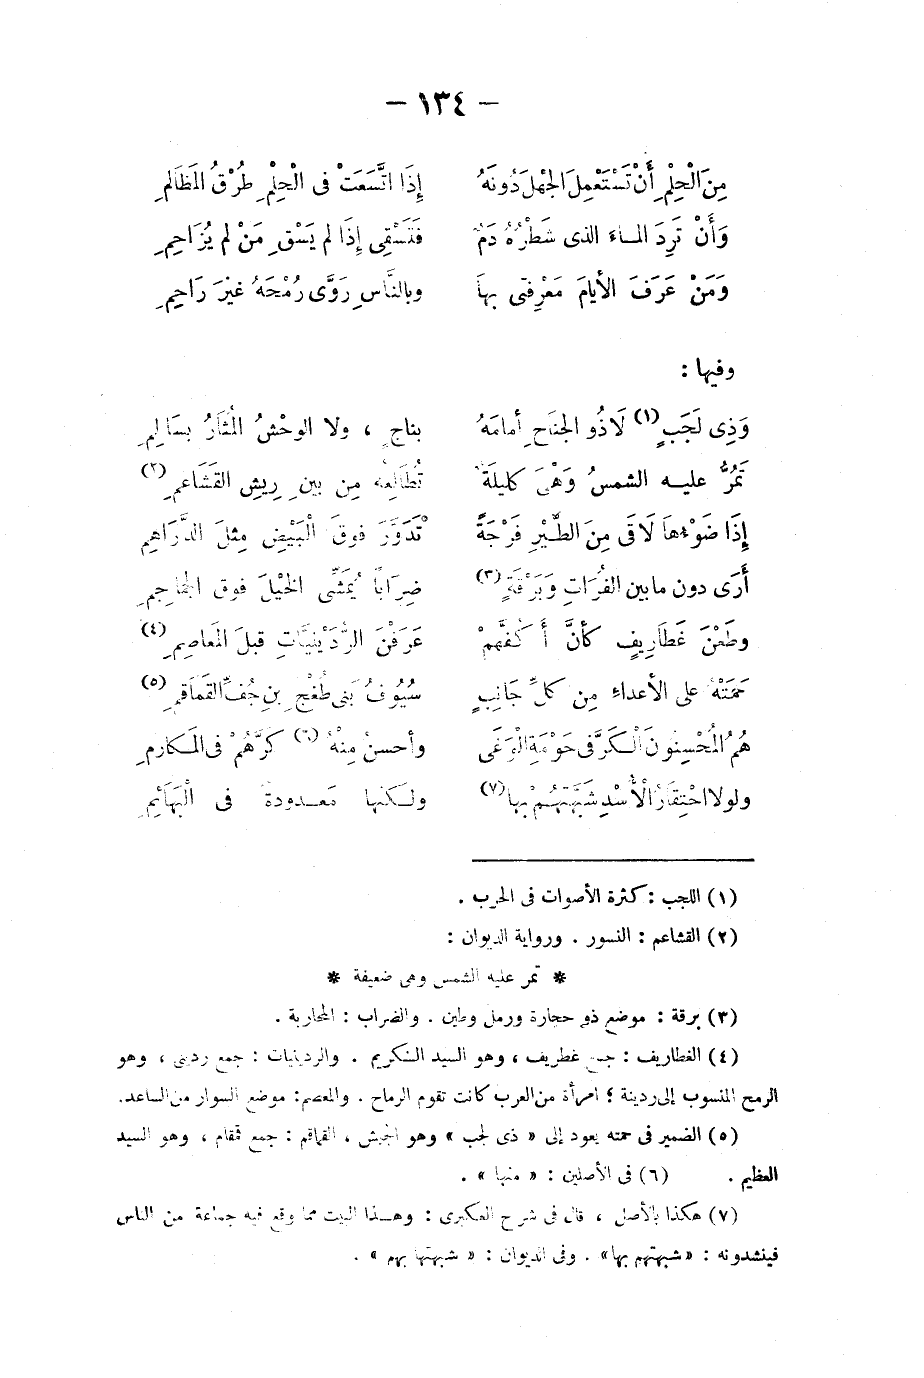 — ١٣٤ —
مِنَ الْحِلْمِ أَنْ تَسْتَعْمِلَ الجْهلَ دُونَهُ إِذَا اتَّسَعَتْ فى الْحِلْمِ طُرْقُ المَظَالمِ
وَأَنْ تَرِدَ المـاءَ الذى شَطْرُهُ دَمٌ فَتَسْقِى إِذَا لم يَسْقِ مَنْ لم يُزَاحِمِ
وَمَنْ عَرَفَ الأيامَ مَعْرِفتى بِهاَ وبالنَّاسِ رَوَّى رُمْحَهُ غيرَ رَاحِمِ
وفيها :
وَذِى لَجَبٍ (١) لَا ذُو الجناحِ أمامَهُ بناجٍ ، ولا الوحْشُ الْمُثَارُ بسَالِمِ
تَمُرُّ عليـه الشمسُ وَهْىَ كليلَةٌ تُطَالِعُهُ مِن بينِ رِيشِ القَشَاعمِ (٢)
إِذَا ضَوْءها لَاقَى مِنَ الطَّيْرِ فَرْجَةً تَدَوَّرَ فوقَ الْبَيْضِ مِثلَ الدَّرَاهِمِ
أَرَى دون ما بين الفُرَاتِ وَبَرْقَةٍ (٣) ضِرَاباً يُمَشِّى الخيْلَ فوق الجماجِمِ
وطَعْنَ غَطَارِيفٍ كأنَّ أَكُفَّهمْ عَرَفْنَ الرُّدَيْنِيَّاتِ قبلَ المَعَاصِمِ (٤)
حَمَتْهُ على الأعداءِ مِن كلِّ جَانِبٍ سُيُوفُ بَنى طُغْجِ بنِ جُفِّ القَمَاقمِ (٥)
هُمُ الْمُحْسِنُونَ الْـكَرَّ فى حَوْمَةِ الْوَغَى وأحسنُ مِنْهُ (٦) كَرُّهُمْ فى المَـكارمِ
ولولا احْتِقَارُ الْأُسْدِ شَبَّهْتُهُـمْ بِها (٧) ولـكنها مَعْـدودةٌ فى الْبَهَائِمِ
(١) اللجب : كثرة الأصوات فى الحرب .
(٢) القشاعم : النسور . ورواية الديوان :
* تمر عليه الشمس وهى ضعيفة *
(٣) برقة : موضع ذو حجارة ورمل وطين . والضراب : المحاربة .
(٤) الغطاريف : جمع غطريف ، وهو السيد الـكريم . والردينيات : جمع ردينى ، وهو
الرمح المنسوب إلى ردينة ؛ امرأة من العرب كانت تقوم الرماح . والمعصم: موضع السوار من الساعد.
(٥) الضمير فى حمته يعود إلى « ذى لجب » وهو الجيش ، القماقم : جمع قمقام ، وهو السيد
العظيم . (٦) فى الأصلين : « منها » .
(٧) هكذا بالأصل ، قال فى شرح العكبرى : وهـذا البيت مما وقع فيه جماعة من الناس
فينشدونه : «شبهتهم بها» . وفى الديوان : « شبهتها بهم » .